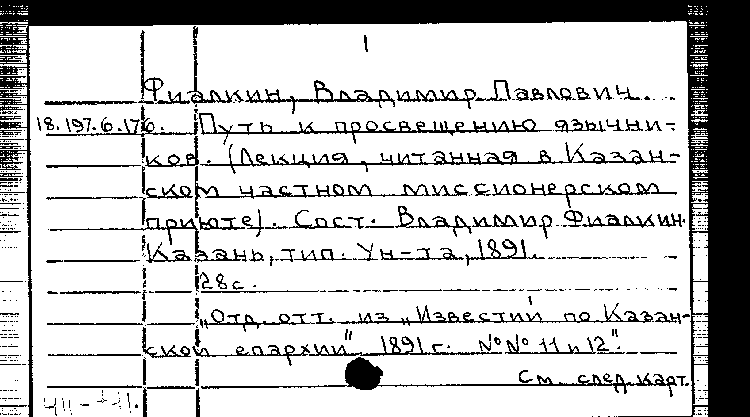 1
Фиалкин, Владимир Павлович.
18.197.6.176. Путь к просвещению язычни-
ков. (Лекция, читанная в Казан-
ском частном миссионерском
приюте). Сост. Владимир Фиалкин.
Казань, тип. Ун-та, 1891.
28с.
„Отд. отт. из „Известий по Казан-
ской епархии" 1891 г. №№ 11 и 12".
См. след. карт.